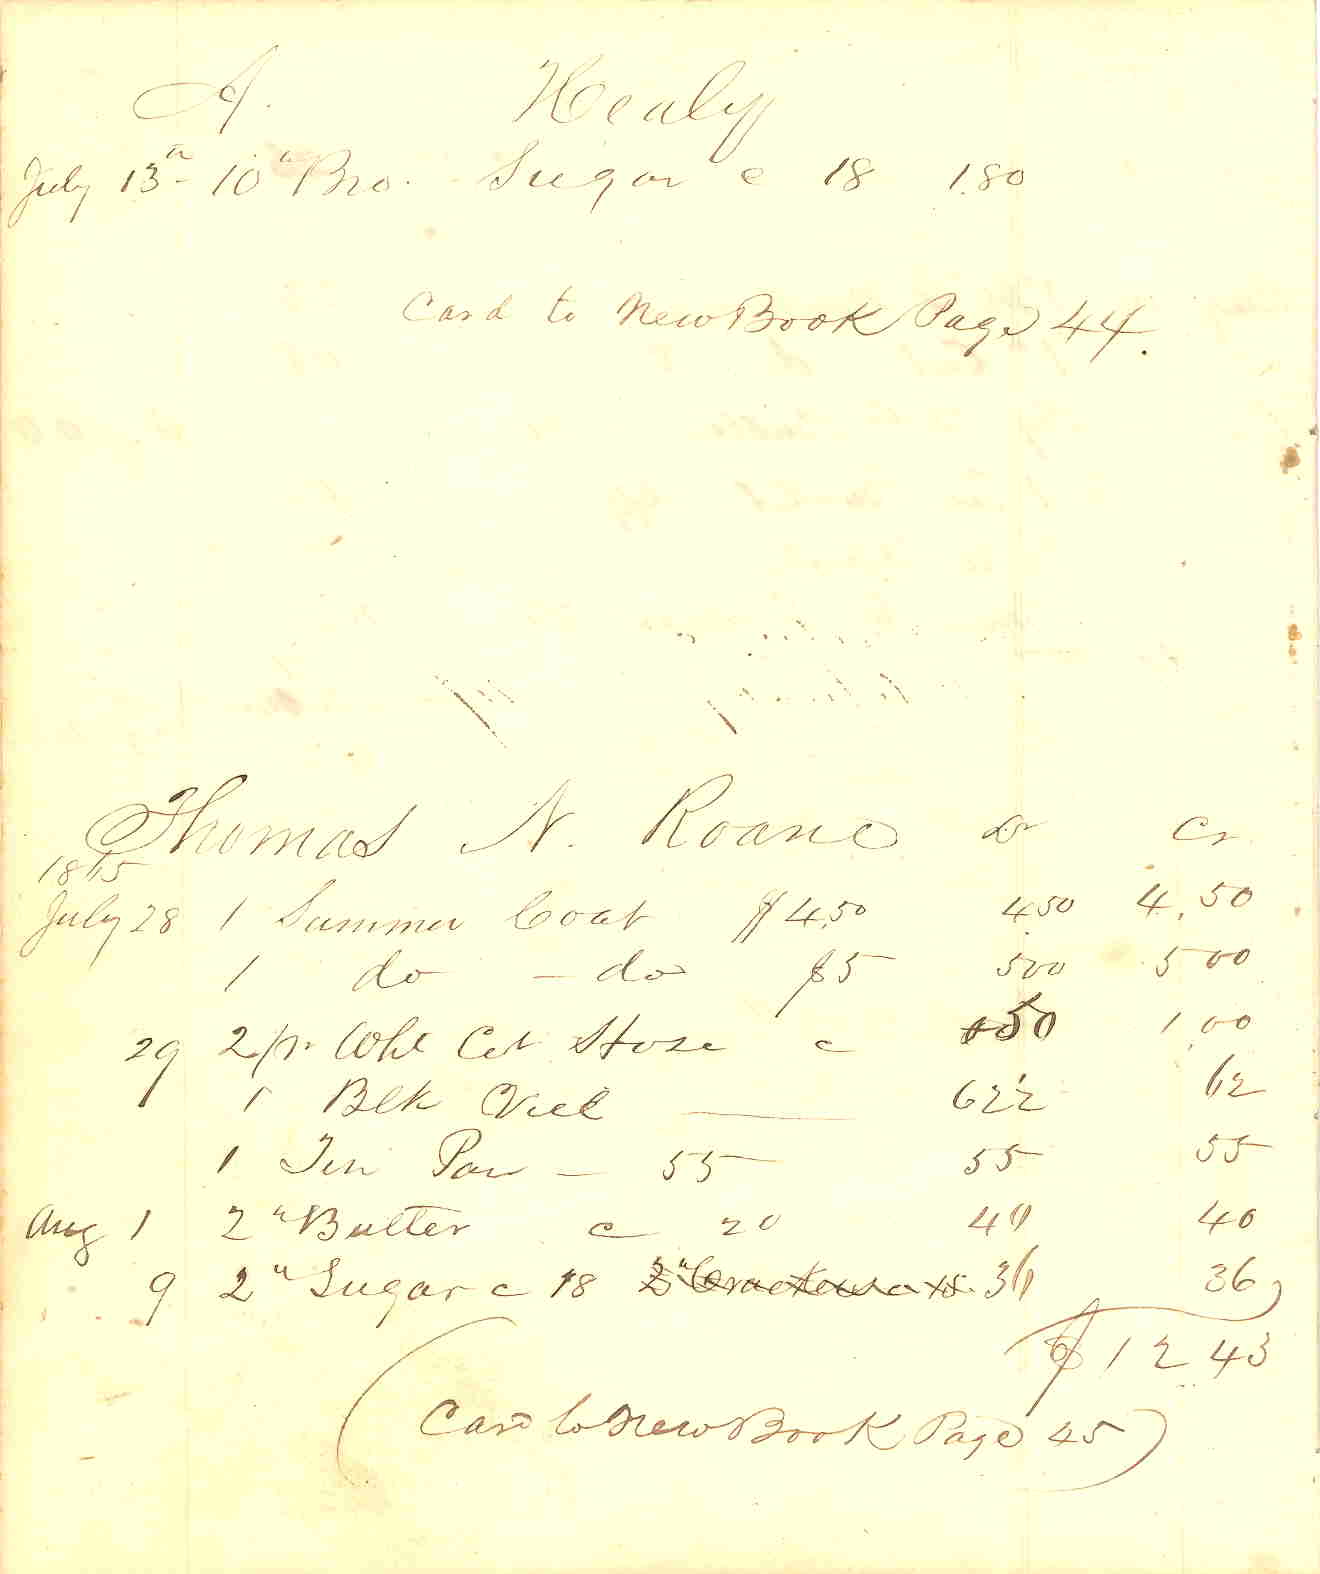 A. Healy
July 13th - 10 " Bro. Sugar c 18 1.80
Card to New Book Page 44.
Thomas N. Roane Dr Cr
1865
July 28 1 Summer Coat $4.50 4.50 4.50
1 do - do $5 500 5 00
29 2 pr Wht Cot Hose c 50 1 00
1 Blk Viel — 62 62
1 Tin Pan - 55 55 55
Aug 1 2 " Butter c 20 40 40
9 2 " Sugar c 18 2 " Crackers c 18 36 36
$12 43
(Card to New Book Page 45)